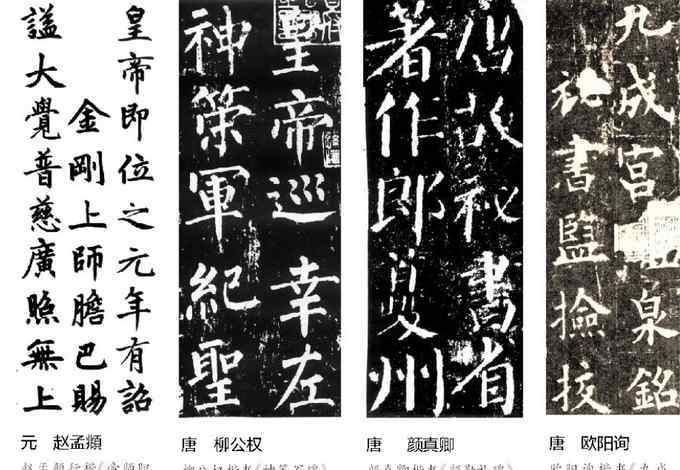 皇帝即位之元年有詔
金剛上師膽巴賜
謚大覺普慈廣照無上
皇帝巡幸左
神策軍紀聖
唐故秘書省
著作郎夔州
九成宮泉銘
秘書監檢挍
元 赵孟頫
唐 柳公权
唐 颜真卿
唐 欧阳询